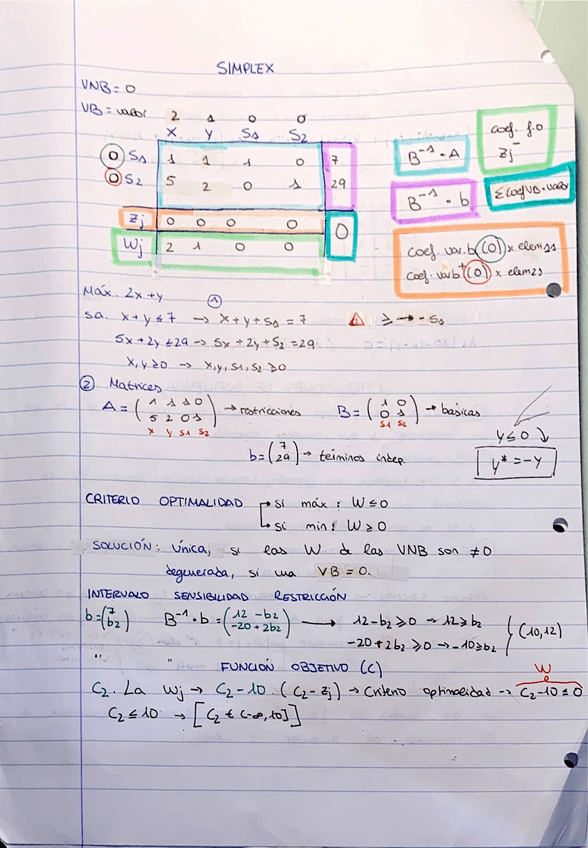 SIMPLEX
VNB = 0
VB = valor 2 1 0 0
X Y S1 S2
0 S1 1 1 1 0 7
0 S2 5 2 0 1 29
Zj 0 0 0 0 0
Wj 2 1 0 0
B⁻¹ · A
coef. f.o - Zj
B⁻¹ · b
ΣcoefVB · valor
coef. var. b (0) x elem 1s
+
coef. var b (0) x elem 2s
Máx. 2x + y ①
s.a. x + y ≤ 7 → x + y + S1 = 7 ⚠ ≥ → - S1
5x + 2y ≤ 29 → 5x + 2y + S2 = 29
x, y ≥ 0 → x, y, S1, S2 ≥ 0
② Matrices
A = (1 1 1 0 → restricciones B = (1 0 → básicas
5 2 0 1) 0 1)
x y S1 S2 S1 S2
y ≤ 0
b = (7 29) → términos indep. y* = -y
CRITERIO OPTIMALIDAD si máx: W ≤ 0
si min: W ≥ 0
SOLUCIÓN: única, si las W de las VNB son ≠ 0
degenerada, si una VB = 0.
INTERVALO SENSIBILIDAD RESTRICCIÓN
b = (7 b2) B⁻¹ · b = (12 - b2 → 12 - b2 ≥ 0 → 12 ≥ b2
-20 + 2b2) -20 + 2b2 ≥ 0 → -10 ≥ b2 (10,12)
" " FUNCIÓN OBJETIVO (C) W
C2. La Wj → C2 - 10 (C2 - Zj) → criterio optimalidad → C2 - 10 ≤ 0
C2 ≤ 10 → [C2 ∈ (-∞, 10]]